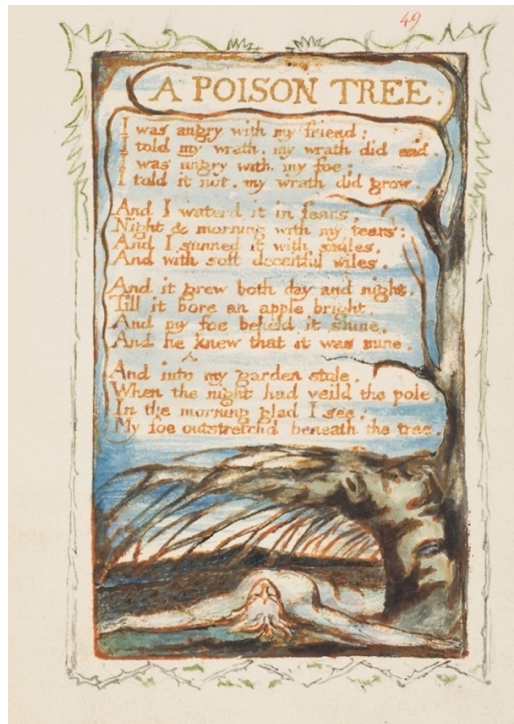 49
A POISON TREE.
I was angry with my friend;
I told my wrath, my wrath did end.
I was angry with my foe;
I told it not, my wrath did grow.
And I waterd it in fears,
Night & morning with my tears:
And I sunned it with smiles,
And with soft deceitful wiles.
And it grew both day and night.
Till it bore an apple bright.
And my foe beheld it shine.
And he knew that it was mine.
And into my garden stole.
When the night had veild the pole
In the morning glad I see;
My foe outstretchd beneath the tree.